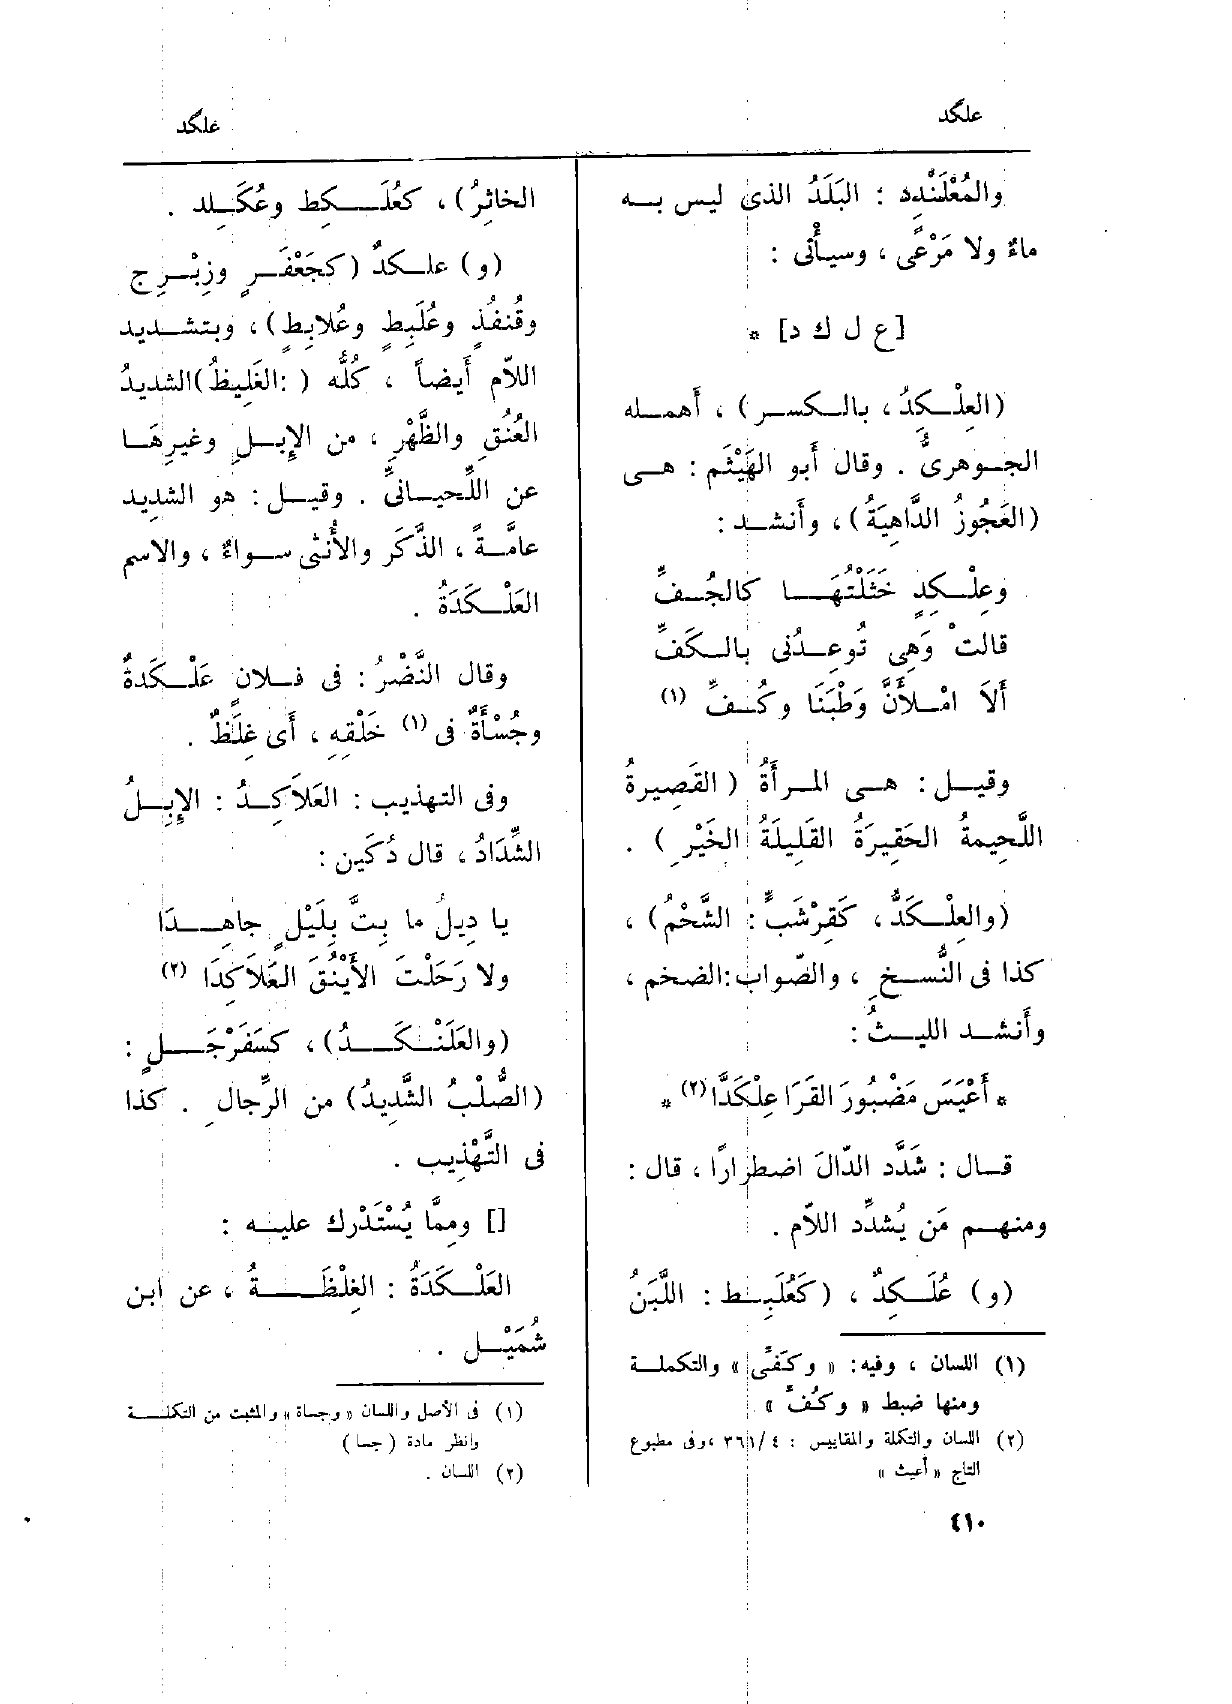 علكد
علكد
والمُعْلَنْدِد : البَلَدُ الذى ليس به
ماءٌ ولا مَرْعًى ، وسيأْتى :
[ع ل ك د] *
(العِلْكِدُ ، بالكسر) ، أَهمله
الجوهرىُّ . وقال أَبو الهَيْثَم : هى
(العَجُوزُ الدَّاهِيَةُ) ، وأَنشد :
وعِلْكِدٍ خَثَلْتُهَا كالجُفِّ
قالتْ وَهِى تُوعِدُنى بالكَفِّ
أَلَا امْلأَنَّ وَطْبَنَا وكُفِّ (١)
وقيل : هى المرأَةُ (القَصِيرةُ
اللَّحِيمةُ الحَقِيرَةُ القَلِيلَةُ الخَيْرِ ) .
(والعِلْكَدُّ ، كَقِرْشَبٍّ : الشَّحْمُ) ،
كذا فى النُّسخِ ، والصّواب :الضخم ،
وأَنشد الليثُ :
* أَعْيَسَ مَضْبُورَ القَرَا عِلْكَدَّا (٢) *
قال : شَدَّد الدّالَ اضطرارًا ، قال :
ومنهم مَن يُشدِّد اللاّم .
(و) عُلَكِدٌ ، (كَعُلَبِط : اللَّبَنُ
(١) اللسان ، وفيه : « وكَفّى » والتكملة
ومنها ضبط « وكُفّ »
(٢) اللسان والتكملة والمقاييس : ٤ /٣٦١ ،وفى مطبوع
التاج « أعيث »
الخاثِرُ) ، كعُلَكِط وعُكَلِد .
(و) علكدٌ (كجَعْفَرٍ وزِبْرِج
وقُنفُذٍ وعُلَبِطٍ وعُلابِطٍ) ، وبتشديد
اللاّم أَيضاً ، كُلُّه ( :الغَلِيظُ)الشديدُ
العُنُقِ والظَّهْرِ ، من الإِبلِ وغيرِهَا
عن اللِّحيانىِّ . وقيل : هو الشديد
عامَّةً ، الذَّكَر والأُنثى سواءٌ ، والاسم
العَلْكَدَةُ .
وقال النَّضْرُ : فى فلانٍ عَلْكَدةٌ
وجُسْأَةٌ فى (١) خَلْقِهِ ، أَى غِلَظٌ .
وفى التهذيب : العَلاَكِدُ : الإِبِلُ
الشِّدَادُ ، قال دُكَين :
يا دِيلُ ما بِتَّ بِلَيْلٍ جاهِدَا
ولا رَحَلْتَ الأَيْنُقَ العَلاَكِدَا (٢)
(والعَلَنْكَدُ) ، كسَفَرْجَلٍ :
(الصُّلْبُ الشَّدِيدُ) من الرِّجالِ . كذا
فى التَّهْذِيب .
[] ومِمَّا يُسْتَدْرك عليه :
العَلْكَدَةُ : الغِلْظَةُ ، عن ابن
شُمَيْل .
(١) فى الأصل واللسان « وجساة » والمثبت من التكلة
وانظر مادة ( جسا )
(٢) اللسان .
٤١٠